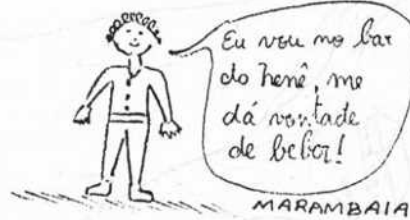 Eu vou no bar
do henê, me
dá vontade
de beber!
MARAMBAIA